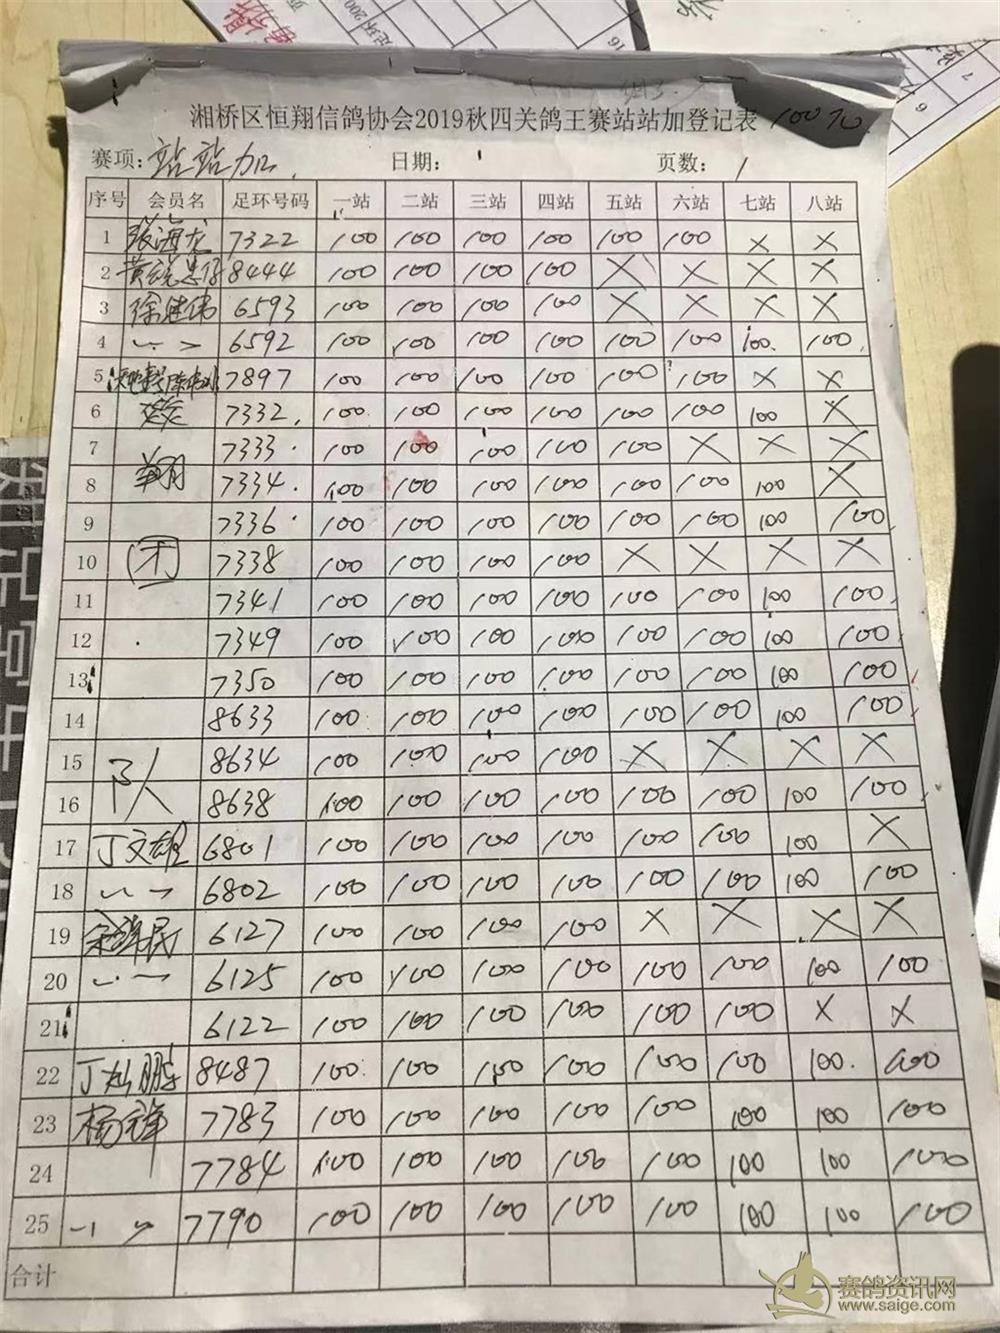 湘桥区恒翔信鸽协会2019秋四关鸽王赛站站加登记表
赛项: 站站加 日期: 页数: 1
序号 会员名 足环号码 一站 二站 三站 四站 五站 六站 七站 八站
1 张海龙 7322 100 100 100 100 100 100 × ×
2 8444 100 100 100 100 × × × ×
3 徐建伟 6593 100 100 100 100 × × × ×
4 6592 100 100 100 100 100 100 100. 100.
5 7897 100 100 100 100 100 100 × ×
6 7332. 100 100 100 100 100 100 100 ×
7 7333. 100 100 100 100 100 × × ×
8 翔 7334. 100 100 100 100 100 100 100 ×
9 7336 100 100 100 100 100 100 100 100
10 7338 100 100 100 100 × × × ×
11 7341 100 100 100 100 100 100 100 100
12 7349 100 100 100 100 100 100 100 100
13 7350 100 100 100 100 100 100 100 100
14 8633 100 100 100 100 100 100 100 100
15 8634 100 100 100 100 × × × ×
16 8638 100 100 100 100 100 100 100 100
17 丁文雄 6801 100 100 100 100 100 100 100 ×
18 6802 100 100 100 100 100 100 100 100
19 6127 100 100 100 100 × × × ×
20 6125 100 100 100 100 100 100 100 100
21 6122 100 100 100 100 100 100 × ×
22 8487 100 100 100 100 100 100 100. 100
23 杨锋 7783 100 100 100 100 100 100 100 100
24 7784 100 100 100 100 100 100 100 100
25 7790 100 100 100 100 100 100 100 100
合计
赛鸽资讯网
www.saige.com